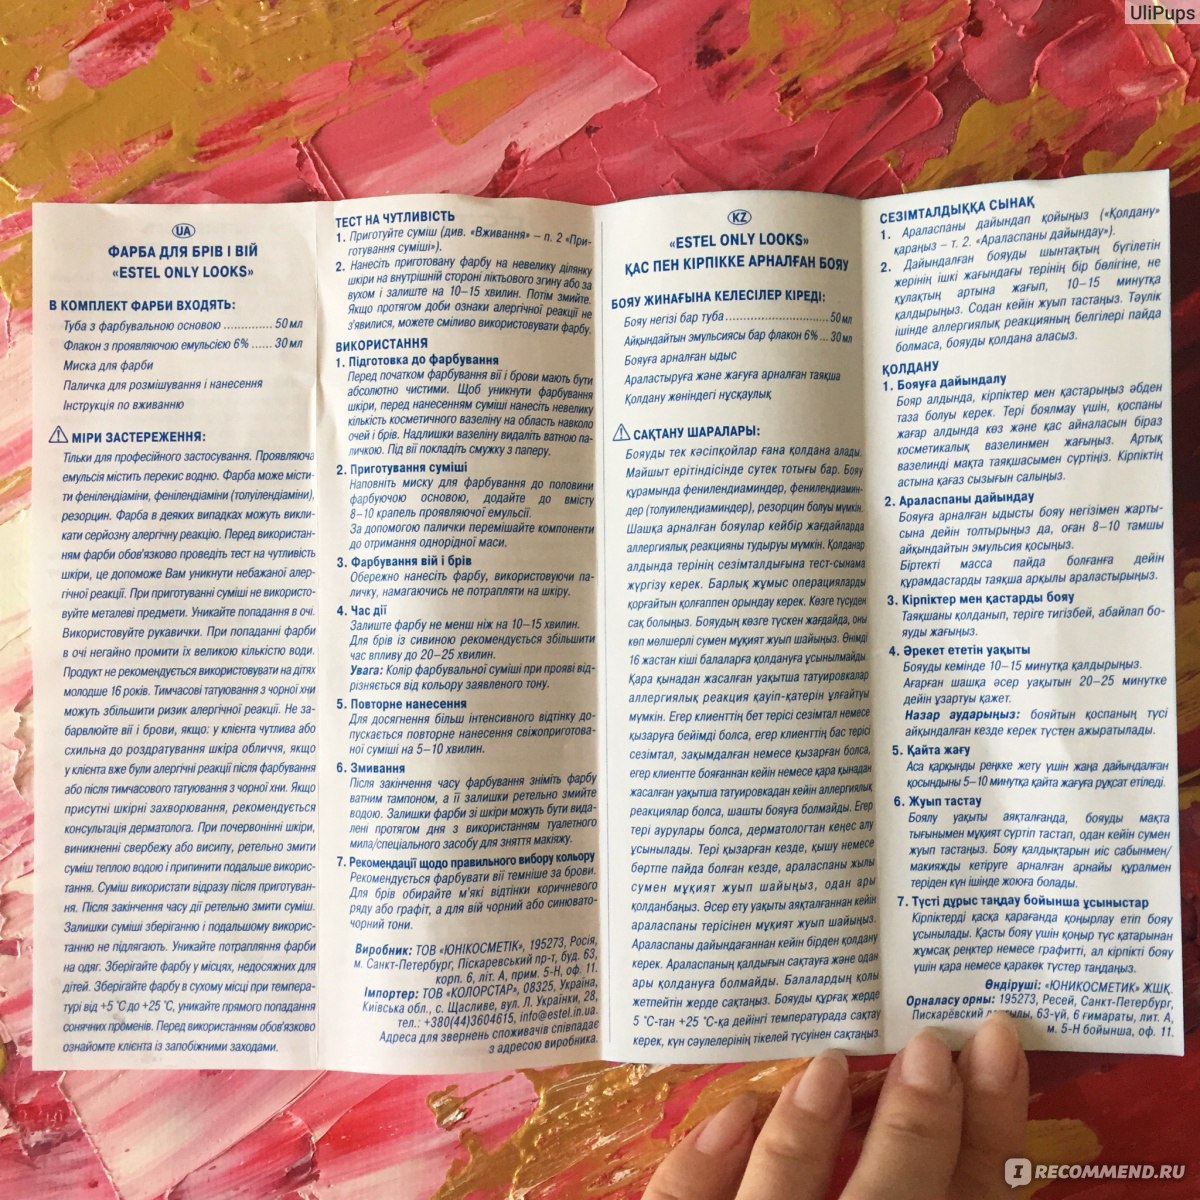 UliPups
UA
ФАРБА ДЛЯ БРІВ І ВІЙ
«ESTEL ONLY LOOKS»
В КОМПЛЕКТ ФАРБИ ВХОДЯТЬ:
Туба з фарбувальною основою .............. 50 мл
Флакон з проявляючою емульсією 6% ...... 30 мл
Миска для фарби
Паличка для розмішування і нанесення
Інструкція по вживанню
МІРИ ЗАСТЕРЕЖЕННЯ:
Тільки для професійного застосування. Проявляюча
емульсія містить перекис водню. Фарба може місти-
ти фенілендіаміни, фенілендіаміни (толуілендіаміни),
резорцин. Фарба в деяких випадках можуть викли-
кати серйозну алергічну реакцію. Перед використан-
ням фарби обов'язково проведіть тест на чутливість
шкіри, це допоможе Вам уникнути небажаної алер-
гічної реакції. При приготуванні суміші не використо-
вуйте металеві предмети. Уникайте попадання в очі.
Використовуйте рукавички. При попаданні фарби
в очі негайно промити їх великою кількістю води.
Продукт не рекомендується використовувати на дітях
молодше 16 років. Тимчасові татуювання з чорної хни
можуть збільшити ризик алергічної реакції. Не за-
барвлюйте вії і брови, якщо: у клієнта чутлива або
схильна до роздратування шкіра обличчя, якщо
у клієнта вже були алергічні реакції після фарбування
або після тимчасового татуювання з чорної хни. Якщо
присутні шкірні захворювання, рекомендується
консультація дерматолога. При почервонінні шкіри,
виникненні свербежу або висипу, ретельно змити
суміш теплою водою і припинити подальше викорис-
тання. Суміш використати відразу після приготуван-
ня. Після закінчення часу дії ретельно змити суміш.
Залишки суміші зберіганню і подальшому викорис-
танню не підлягають. Уникайте потрапляння фарби
на одяг. Зберігайте фарбу у місцях, недосяжних для
дітей. Зберігайте фарбу в сухому місці при темпера-
турі від +5 °С до +25 °С, уникайте прямого попадання
сонячних променів. Перед використанням обов'язково
ознайомте клієнта із запобіжними заходами.
ТЕСТ НА ЧУТЛИВІСТЬ
1. Приготуйте суміш (див. «Вживання» – п. 2 «При-
готування суміші»).
2. Нанесіть приготовану фарбу на невелику ділянку
шкіри на внутрішній стороні ліктьового згину або за
вухом і залиште на 10–15 хвилин. Потім змийте.
Якщо протягом доби ознаки алергічної реакції не
з'явилися, можете сміливо використовувати фарбу.
ВИКОРИСТАННЯ
1. Підготовка до фарбування
Перед початком фарбування вії і брови мають бути
абсолютно чистими. Щоб уникнути фарбування
шкіри, перед нанесенням суміші нанесіть невелику
кількість косметичного вазеліну на область навколо
очей і брів. Надлишки вазеліну видаліть ватною па-
личкою. Під вії покладіть смужку з паперу.
2. Приготування суміші
Наповніть миску для фарбування до половини
фарбуючою основою, додайте до вмісту
8–10 крапель проявляючої емульсії.
За допомогою палички перемішайте компоненти
до отримання однорідної маси.
3. Фарбування вій і брів
Обережно нанесіть фарбу, використовуючи па-
личку, намагаючись не потрапляти на шкіру.
4. Час дії
Залиште фарбу не менш ніж на 10–15 хвилин.
Для брів із сивиною рекомендується збільшити
час впливу до 20–25 хвилин.
Увага: Колір фарбувальної суміші при прояві від-
різняється від кольору заявленого тону.
5. Повторне нанесення
Для досягнення більш інтенсивного відтінку до-
пускається повторне нанесення свіжоприготова-
ної суміші на 5–10 хвилин.
6. Змивання
Після закінчення часу фарбування зніміть фарбу
ватним тампоном, а її залишки ретельно змийте
водою. Залишки фарби зі шкіри можуть бути вида-
лені протягом дня з використанням туалетного
мила/спеціального засобу для зняття макіяжу.
7. Рекомендації щодо правильного вибору кольору
Рекомендується фарбувати вії темніше за брови.
Для брів обирайте м'які відтінки коричневого
ряду або графіт, а для вій чорний або синювато-
чорний тони.
Виробник: ТОВ «ЮНІКОСМЕТІК», 195273, Росія,
м. Санкт-Петербург, Піскаревський пр-т, буд. 63,
корп. 6, літ. А, прим. 5-Н, оф. 11.
Імпортер: ТОВ «КОЛОРСТАР», 08325, Україна,
Київська обл., с. Щасливе, вул. Л. Українки, 28,
тел.: +380(44)3604615, info@estel.in.ua.
Адреса для звернень споживачів співпадає
з адресою виробника.
KZ
«ESTEL ONLY LOOKS»
ҚАС ПЕН КІРПІККЕ АРНАЛҒАН БОЯУ
БОЯУ ЖИНАҒЫНА КЕЛЕСІЛЕР КІРЕДІ:
Бояу негізі бар туба ............................. 50 мл
Айқындайтын эмульсиясы бар флакон 6% ... 30 мл
Бояуға арналған ыдыс
Араластыруға және жағуға арналған таяқша
Қолдану жөніндегі нұсқаулық
САҚТАНУ ШАРАЛАРЫ:
Бояуды тек кәсіпқойлар ғана қолдана алады.
Майшыт ерітіндісінде сутек тотығы бар. Бояу
құрамында фенилендиаминдер, фенилендиамин-
дер (толуилендиаминдер), резорцин болуы мүмкін.
Шашқа арналған бояулар кейбір жағдайларда
аллергиялық реакцияны тудыруы мүмкін. Қолданар
алдында терінің сезімталдығына тест-сынама
жүргізу керек. Барлық жұмыс операцияларды
қорғайтын қолғаппен орындау керек. Көзге түсуден
сақ болыңыз. Бояудың көзге түскен жағдайда, оны
көп мөлшерлі сумен мұқият жуып шайыңыз. Өнімді
16 жастан кіші балаларға қолдануға ұсынылмайды
Қара қынадан жасалған уақытша татуировкалар
аллергиялық реакция қауіп-қатерін ұлғайтуы
мүмкін. Егер клиенттің бет терісі сезімтал немесе
қызаруға бейімді болса, егер клиенттің бас терісі
сезімтал, зақымдалған немесе қызарған болса,
егер клиентте бояғаннан кейін немесе қара қынадан
жасалған уақытша татуировкадан кейін аллергиялық
реакциялар болса, шашты бояуға болмайды. Егер
тері аурулары болса, дерматологтан кеңес алу
ұсынылады. Тері қызарған кезде, қышу немесе
бөртпе пайда болған кезде, араласпаны жылы
сумен мұқият жуып шайыңыз, одан ары
қолданбаңыз. Әсер ету уақыты аяқталғаннан кейін
араласпаны терісінен мұқият жуып шайыңыз.
Араласпаны дайындағаннан кейін бірден қолдану
керек. Араласпаның қалдығын сақтауға және одан
ары қолдануға болмайды. Балалардың қолы
жетпейтін жерде сақтаңыз. Бояуды құрғақ жерде
5 °С-тан +25 °С-қа дейінгі температурада сақтау
керек, күн сәулелерінің тікелей түсуінен сақтаңыз.
СЕЗІМТАЛДЫҚҚА СЫНАҚ
1. Араласпаны дайындап қойыңыз («Қолдану»
қараңыз – т. 2. «Араласпаны дайындау»).
2. Дайындалған бояуды шынтақтың бүгілетін
жерінің ішкі жағындағы терінің бір бөлігіне, не
құлақтың артына жағып, 10–15 минутқа
қалдырыңыз. Содан кейін жуып тастаңыз. Тәулік
ішінде аллергиялық реакцияның белгілері пайда
болмаса, бояуды қолдана аласыз.
ҚОЛДАНУ
1. Бояуға дайындалу
Бояр алдында, кірпіктер мен қастарыңыз әбден
таза болуы керек. Тері боялмау үшін, қоспаны
жағар алдында көз және қас айналасын біраз
косметикалық вазелинмен жағыңыз. Артық
вазелинді мақта таяқшасымен сүртіңіз. Кірпіктің
астына қағаз сызығын салыңыз.
2. Араласпаны дайындау
Бояуға арналған ыдысты бояу негізімен жарты-
сына дейін толтырыңыз да, оған 8–10 тамшы
айқындайтын эмульсия қосыңыз.
Біртекті масса пайда болғанға дейін
құрамдастарды таяқша арқылы араластырыңыз.
3. Кірпіктер мен қастарды бояу
Таяқшаны қолданып, теріге тигізбей, абайлап бо-
яуды жағыңыз.
4. Әрекет ететін уақыты
Бояуды кемінде 10–15 минутқа қалдырыңыз.
Ағарған шашқа әсер уақытын 20–25 минутке
дейін ұзартуы қажет.
Назар аударыңыз: бояйтын қоспаның түсі
айқындалған кезде керек түстен ажыратылады.
5. Қайта жағу
Аса қарқынды реңкке жету үшін жаңа дайындалған
қосындыны 5–10 минутқа қайта жағуға рұқсат етіледі.
6. Жуып тастау
Боялу уақыты аяқталғанда, бояуды мақта
тығынымен мұқият сүртіп тастап, одан кейін сумен
жуып тастаңыз. Бояу қалдықтарын иіс сабынмен/
макияжды кетіруге арналған арнайы құралмен
теріден күн ішінде жоюға болады.
7. Түсті дұрыс таңдау бойынша ұсыныстар
Кірпіктерді қасқа қарағанда қоңырлау етіп бояу
ұсынылады. Қасты бояу үшін қоңыр түс қатарынан
жұмсақ реңктер немесе графитті, ал кірпікті бояу
үшін қара немесе қаракөк түстер таңдаңыз.
Өндіруші: «ЮНИКОСМЕТИК» ЖШҚ.
Орналасу орны: 195273, Ресей, Санкт-Петербург,
Пискаревский 63-үй, 6 ғимараты, лит. А,
м. 5-Н бойынша, оф. 11.
IRECOMMEND.RU